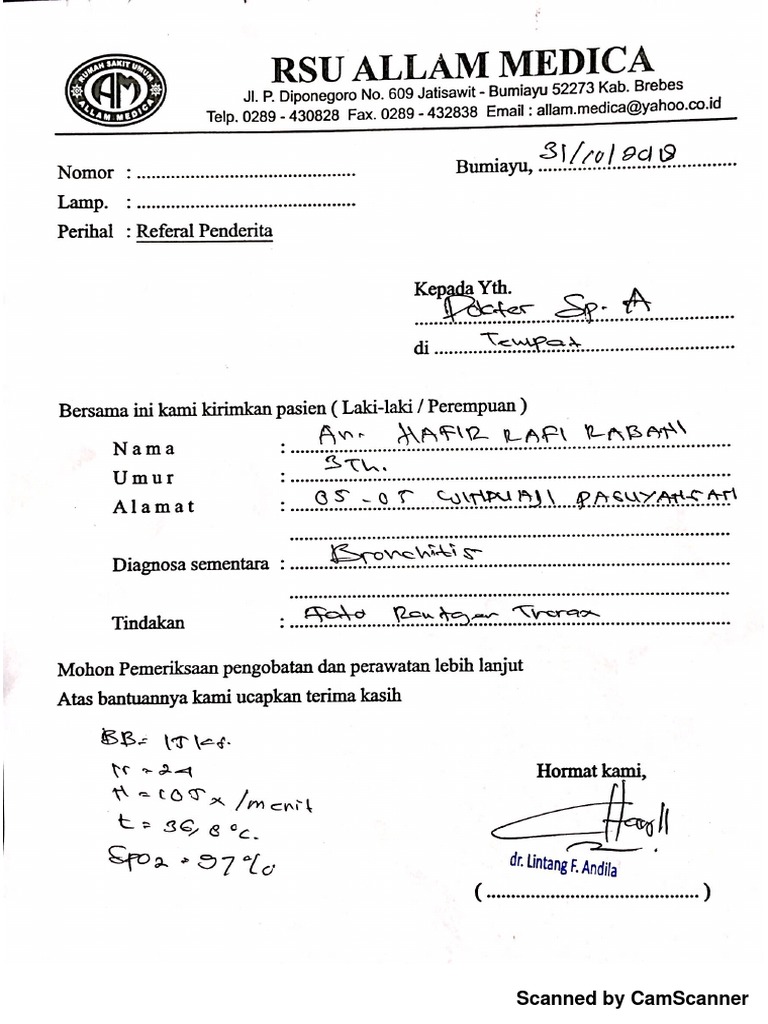 RUMAH SAKIT UMUM
AM
ALLAM MEDICA
RSU ALLAM MEDICA
Jl. P. Diponegoro No. 609 Jatisawit - Bumiayu 52273 Kab. Brebes
Telp. 0289 - 430828 Fax. 0289 - 432838 Email : allam.medica@yahoo.co.id
Bumiayu, 31/10/2018
Nomor : ..........................................
Lamp. : ..........................................
Perihal : Referal Penderita
Kepada Yth.
Dokter Sp. A
di Tempat
Bersama ini kami kirimkan pasien ( Laki-laki / Perempuan )
Nama : An. HAFIR RAFI RABANI
Umur : 3 Th.
Alamat : 05 - 05
Diagnosa sementara : Bronchitis
Tindakan : Foto Rontgen Thorax
Mohon Pemeriksaan pengobatan dan perawatan lebih lanjut
Atas bantuannya kami ucapkan terima kasih
BB = 15 kg.
= 24
= 105 x /menit
t = 36,8 °C.
SpO2 = 97%
Hormat kami,
dr. Lintang F. Andila
( .......................................... )
Scanned by CamScanner